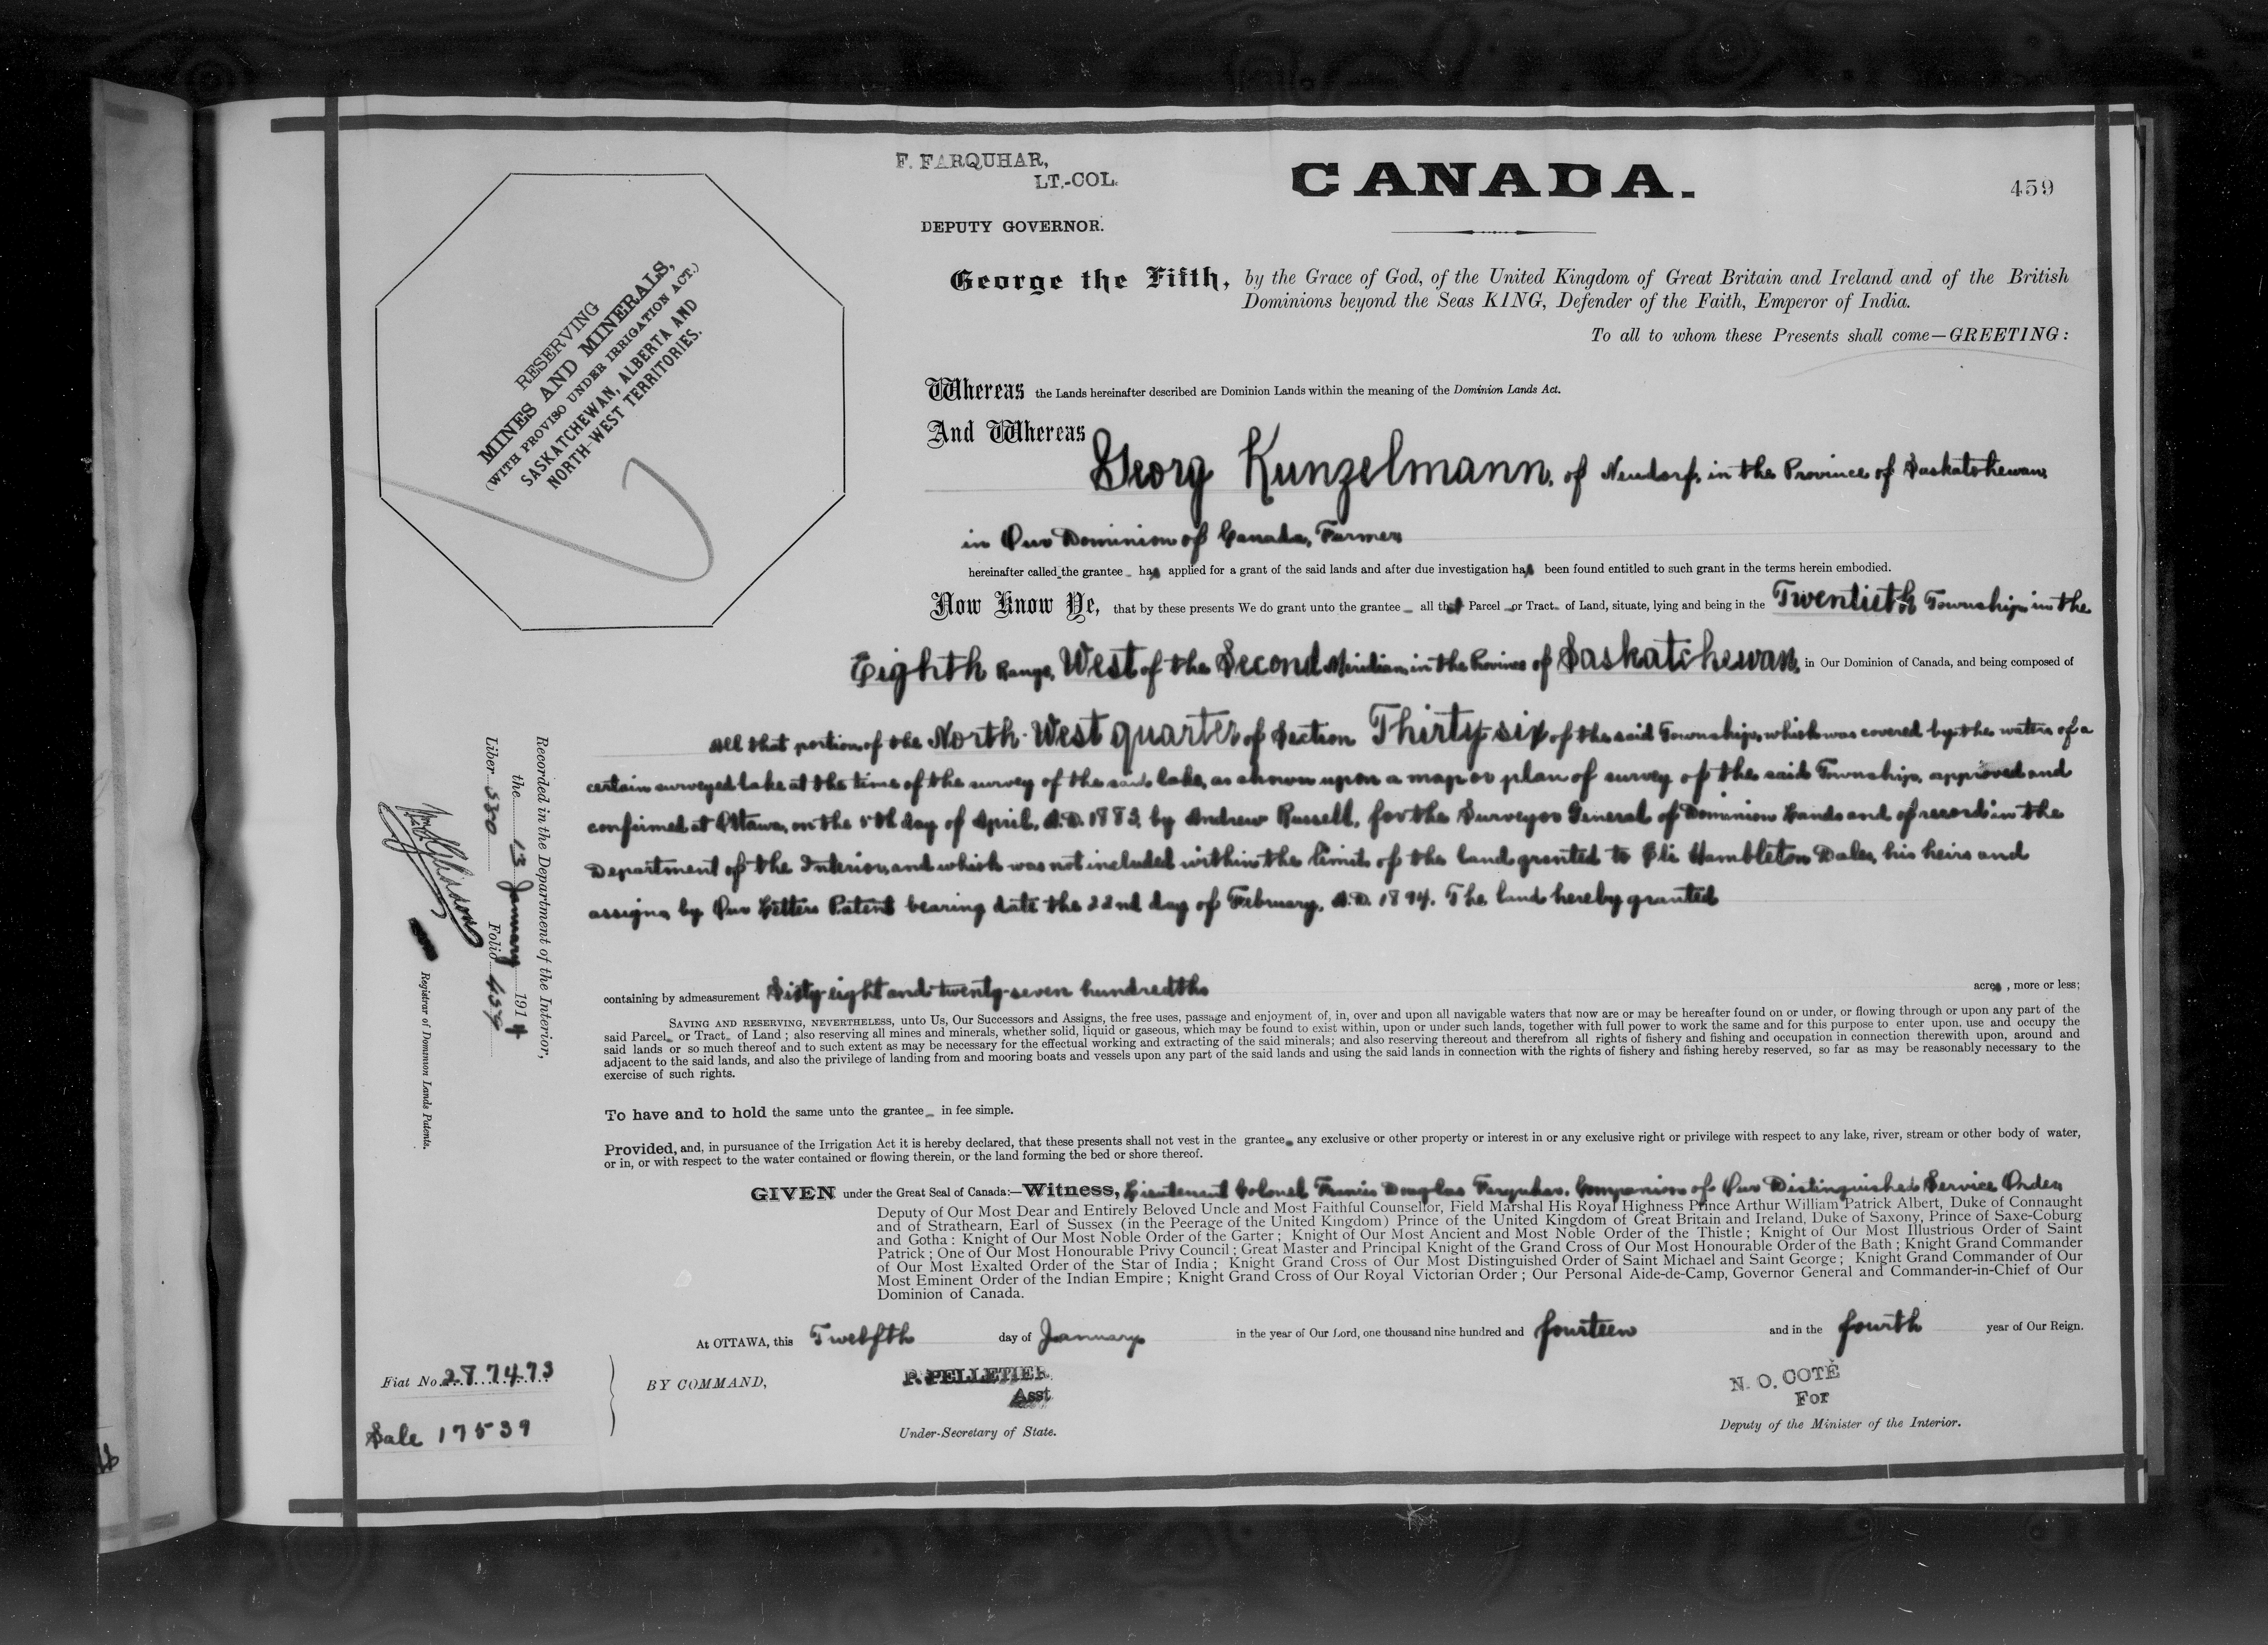 F. FARQUHAR,
LT.-COL.
DEPUTY GOVERNOR.
CANADA.
459
RESERVING
MINES AND MINERALS,
(WITH PROVISO UNDER IRRIGATION ACT.)
SASKATCHEWAN, ALBERTA AND
NORTH-WEST TERRITORIES.
George the Fifth, by the Grace of God, of the United Kingdom of Great Britain and Ireland and of the British
Dominions beyond the Seas KING, Defender of the Faith, Emperor of India.
To all to whom these Presents shall come—GREETING:
Whereas the Lands hereinafter described are Dominion Lands within the meaning of the Dominion Lands Act.
And Whereas
Georg Kunzelmann, of Neudorf, in the Province of Saskatchewan,
in Our Dominion of Canada, Farmer
hereinafter called the grantee has applied for a grant of the said lands and after due investigation has been found entitled to such grant in the terms herein embodied.
Now Know Ye, that by these presents We do grant unto the grantee all that Parcel or Tract of Land, situate, lying and being in the Twentieth Township, in the
Eighth Range, West of the Second Meridian, in the Province of Saskatchewan, in Our Dominion of Canada, and being composed of
All that portion of the North West quarter of Section Thirty six of the said Township, which was covered by the waters of a
certain surveyed lake at the time of the survey of the said lake, as shown upon a map or plan of survey of the said Township, approved and
confirmed at Ottawa, on the 5th day of April, A.D. 1883, by Andrew Russell, for the Surveyor General of Dominion Lands and of record in the
Department of the Interior, and which was not included within the limits of the land granted to Eli Hambleton Dales, his heirs and
assigns, by Our Letters Patent bearing date the 22nd day of February, A.D. 1894. The land hereby granted
containing by admeasurement Sixty eight and twenty-seven hundredths acres, more or less;
SAVING AND RESERVING, NEVERTHELESS, unto Us, Our Successors and Assigns, the free uses, passage and enjoyment of, in, over and upon all navigable waters that now are or may be hereafter found on or under, or flowing through or upon any part of the
said Parcel or Tract of Land; also reserving all mines and minerals, whether solid, liquid or gaseous, which may be found to exist within, upon or under such lands, together with full power to work the same and for this purpose to enter upon, use and occupy the
said lands or so much thereof and to such extent as may be necessary for the effectual working and extracting of the said minerals; and also reserving thereout and therefrom all rights of fishery and fishing and occupation in connection therewith upon, around and
adjacent to the said lands, and also the privilege of landing from and mooring boats and vessels upon any part of the said lands and using the said lands in connection with the rights of fishery and fishing hereby reserved, so far as may be reasonably necessary to the
exercise of such rights.
To have and to hold the same unto the grantee in fee simple.
Provided, and, in pursuance of the Irrigation Act it is hereby declared, that these presents shall not vest in the grantee any exclusive or other property or interest in or any exclusive right or privilege with respect to any lake, river, stream or other body of water,
or in, or with respect to the water contained or flowing therein, or the land forming the bed or shore thereof.
GIVEN under the Great Seal of Canada:—Witness, Lieutenant Colonel Francis Douglas Farquhar, Companion of Our Distinguished Service Order,
Deputy of Our Most Dear and Entirely Beloved Uncle and Most Faithful Counsellor, Field Marshal His Royal Highness Prince Arthur William Patrick Albert, Duke of Connaught
and of Strathearn, Earl of Sussex (in the Peerage of the United Kingdom) Prince of the United Kingdom of Great Britain and Ireland, Duke of Saxony, Prince of Saxe-Coburg
and Gotha: Knight of Our Most Noble Order of the Garter; Knight of Our Most Ancient and Most Noble Order of the Thistle; Knight of Our Most Illustrious Order of Saint
Patrick; One of Our Most Honourable Privy Council; Great Master and Principal Knight of the Grand Cross of Our Most Honourable Order of the Bath; Knight Grand Commander
of Our Most Exalted Order of the Star of India; Knight Grand Cross of Our Most Distinguished Order of Saint Michael and Saint George; Knight Grand Commander of Our
Most Eminent Order of the Indian Empire; Knight Grand Cross of Our Royal Victorian Order; Our Personal Aide-de-Camp, Governor General and Commander-in-Chief of Our
Dominion of Canada.
At OTTAWA, this Twelfth day of January in the year of Our Lord, one thousand nine hundred and fourteen and in the fourth year of Our Reign.
BY COMMAND,
P. PELLETIER
Asst
Under-Secretary of State.
N. O. COTÉ
For
Deputy of the Minister of the Interior.
Fiat No. 287473
Sale 17539
Recorded in the Department of the Interior,
the 13 January 1914
Liber 530 Folio 459
Registrar of Dominion Lands Patents.